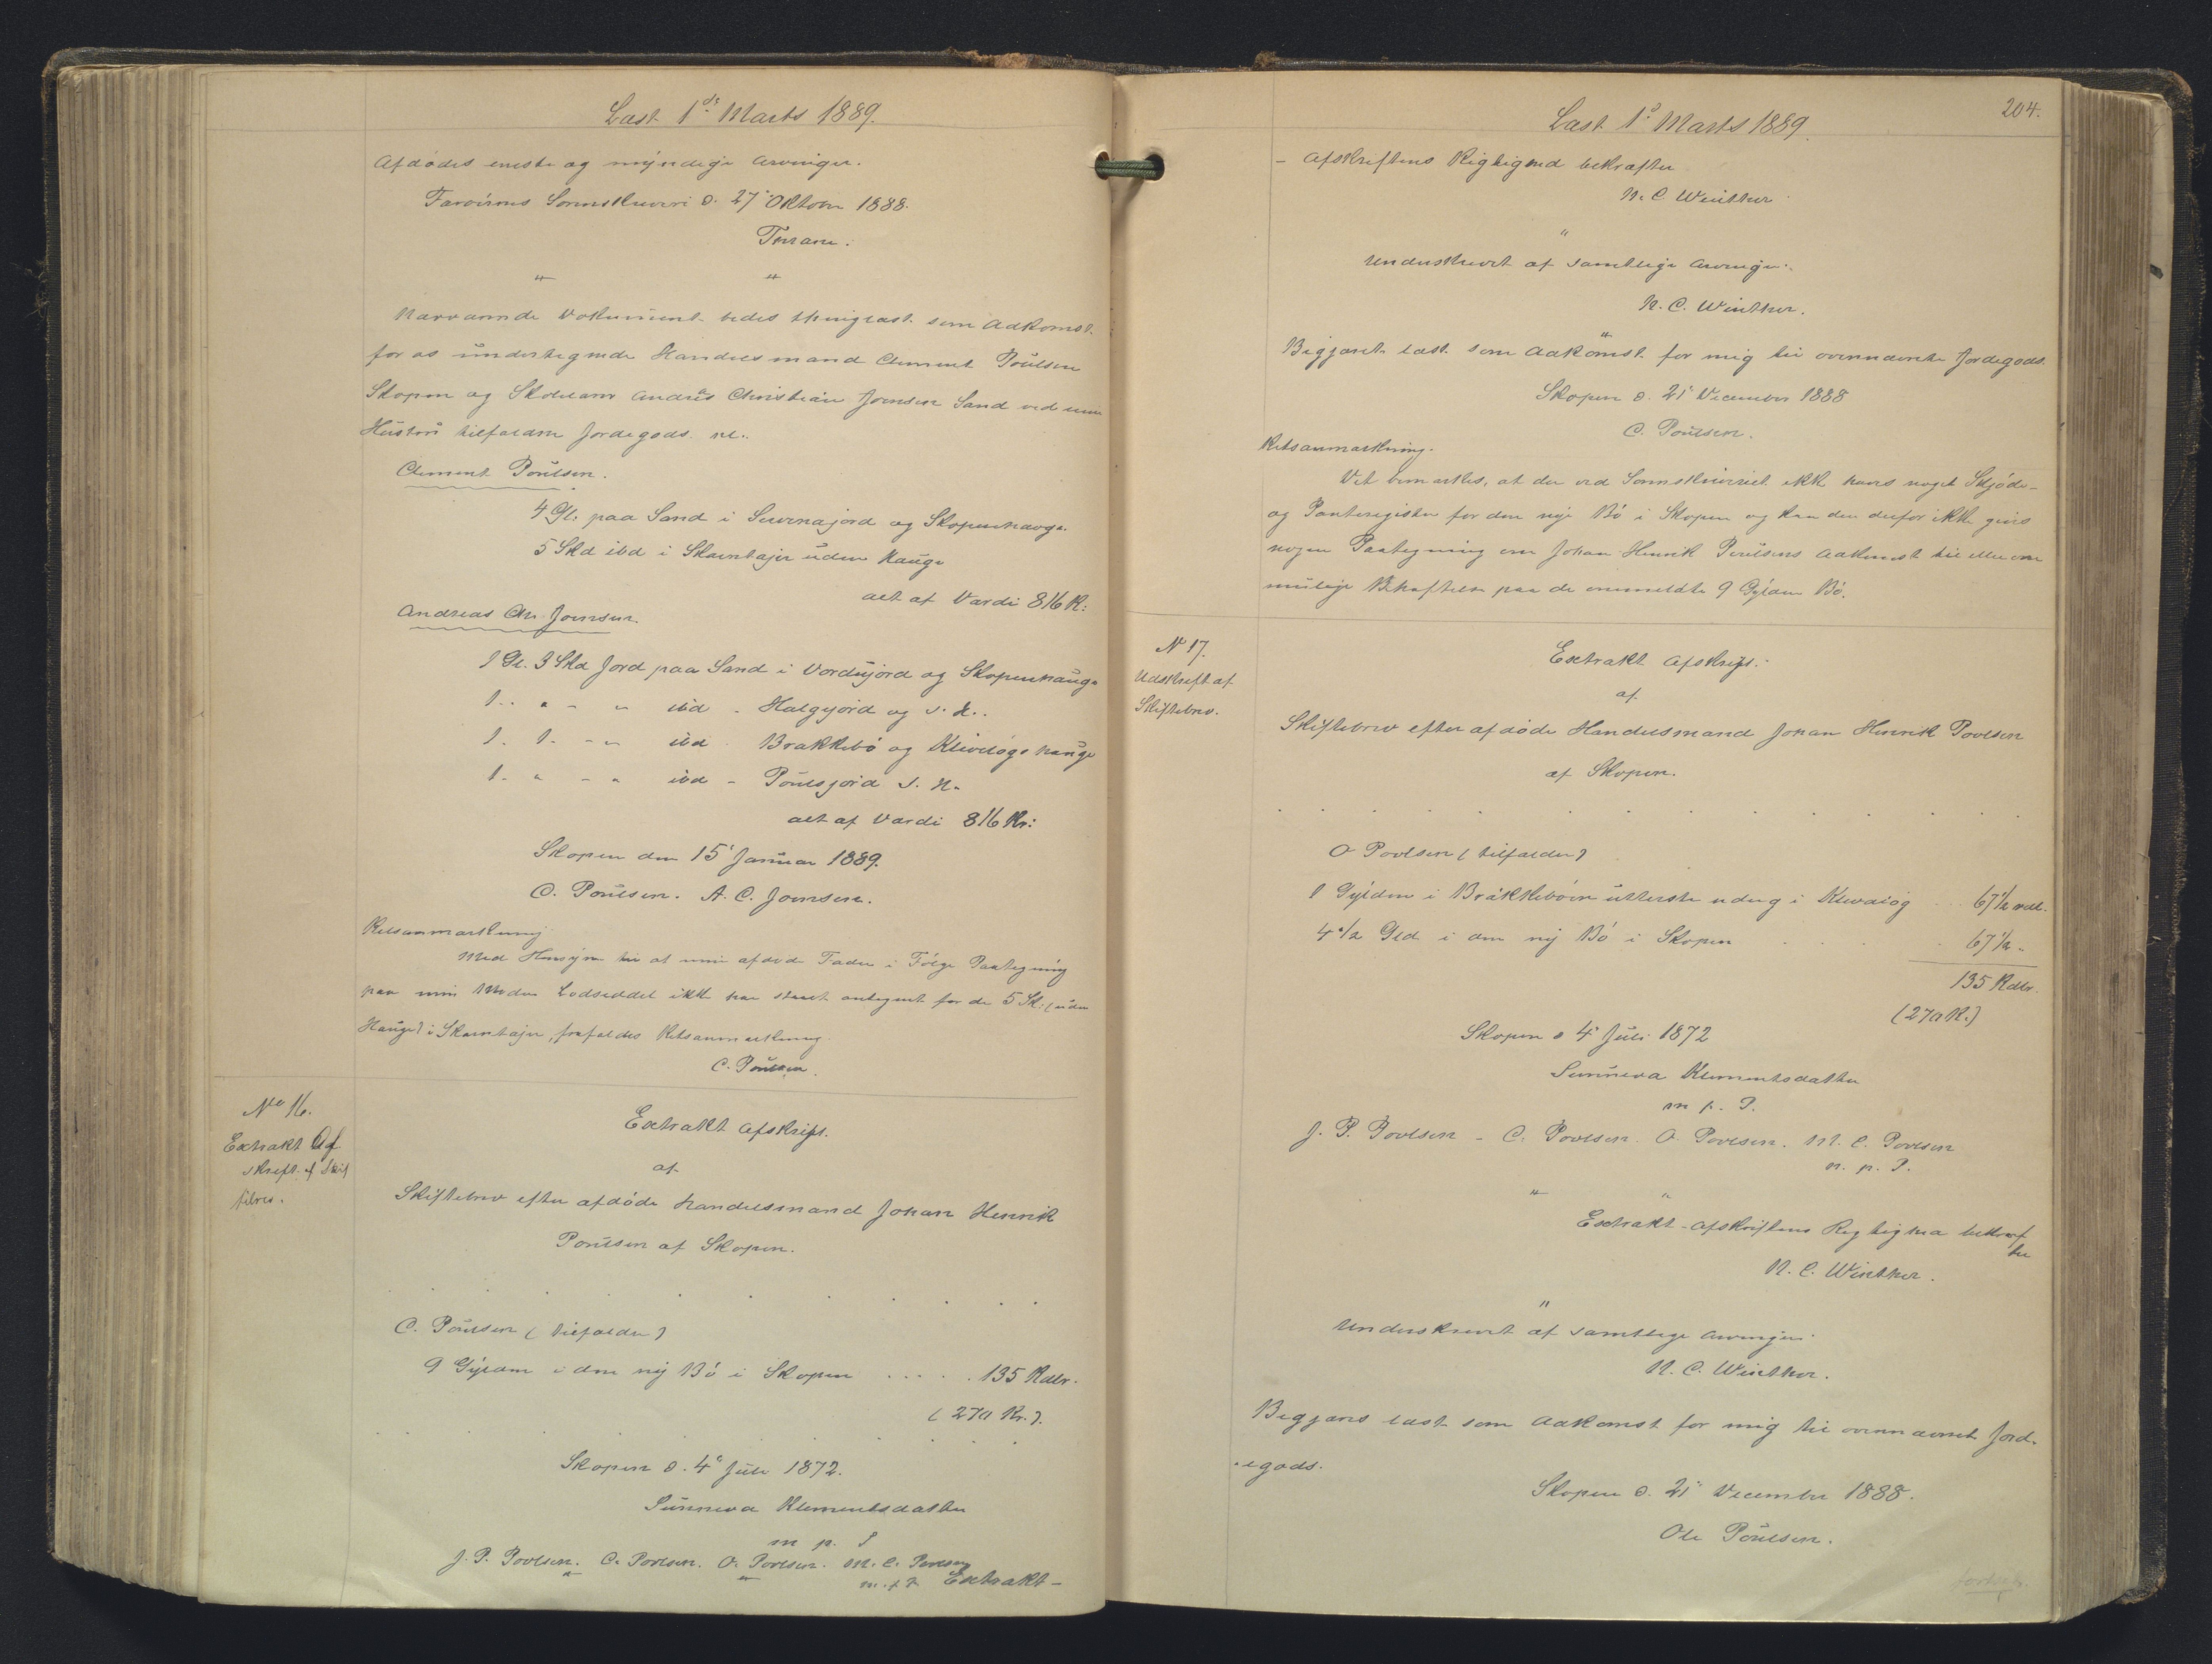 Læst 1ste Marts 1889.
Afdødes eneste og myndige Arvinger.
Færøernes Sorenskriveri d. 27' Oktober 1888.
"    "
Nærværende Dokument bedes thinglæst som Adkomst
for os undertegnede Handelsmand Clement Poulsen
Skopen og Skolelærer Andreas Christian Joensen Sand ved min
Hustru tilfaldne Jordegods nl.
Clement Poulsen.
4 Gl: paa Sand i Suvinajord og Skopenhauge
5 Skd ibd i Skarntajer uden Hauge
alt af Værdi 816 K:
Andreas Chr Joensen.
1 Gl. 3 Skd Jord paa Sand i Vordujord og Skopenhauge
1 . " - " ibd - Halgijord og s. H..
1. 1. - " ibd . Brakkebø og Klivaløgs hauge
1. " - " ibd - Poulsjord s. H.
alt af Værdi 816 Kr:
Skopen den 15' Januar 1889.
C. Poulsen. A. C. Joensen.
Retsanmærkning
Med Hensyn til at min afdøde Fader i Følge Paategning
paa min Moders Lodseddel ikke har staaet antegnet for de 5 Sk: (uden
Hauge) i Skarntajer, frafaldes Retsanmærkning.
C. Poulsen.
No 16.
Extrakt Af
skrift af Skif
tebrev.
Extrakt Afskrift.
af
Skiftebrev efter afdøde Handelsmand Johan Henrik
Poulsen af Skopen.
. . . . . . . . . .
C. Poulsen (tilfalder)
9 Gylden i den ny Bø i Skopen . . . . . 135 Rdlr.
(270 Kr.).
. . . . . . . . . .
Skopen d. 4' Juli 1872.
Sunneva Klementsdatter
m p. P
J. P. Poulsen. C. Poulsen. O. Poulsen. M. C. Poulsen
m. p. P. Extrakt-
204.
Læst 1' Marts 1889.
- Afskriftens Rigtighed bekræfter
N. C. Winther.
"
Underskrevet af samtlige Arvinger.
N. C. Winther.
"
Begjæret læst som Adkomst for mig til ovennævnte Jordegods.
Skopen d. 21' December 1888
C. Poulsen.
Retsanmærkning.
Det bemærkes, at der ved Sorenskriveriet ikke haves noget Skjøde-
og Panteregister for den nye Bø i Skopen og kan der derfor ikke gives
nogen Paategning om Johan Henrik Poulsens Adkomst til eller om
mulige Behæftelser paa de ommeldte 9 Gylden Bø.
N 17.
Udskrift af
Skiftebrev.
Extrakt Afskrift.
af
Skiftebrev efter afdøde Handelsmand Johan Henrik Povlsen
af Skopen.
. . . . . . . . . . . .
O Povlsen (tilfalder)
1 Gylden i Brakkebøen utterste udeg i Klivaløg . . . 67 1/2 rdl.
4 1/2 Gld i den ny Bø i Skopen . . . . 67 1/2 "
135 Rdlr.
(270 K.)
Skopen d 4' Juli 1872
Sunneva Klementsdatter
m p. P.
J. P. Povlsen - C. Povlsen. O. Povlsen. M. C. Povlsen
m. p. P.
"    "
Extrakt-Afskriftens Rigtighed bekræf
ter
N. C. Winther.
"
Underskrevet af samtlige Arvinger.
N. C. Winther.
Begjæres læst som Adkomst for mig til ovennævnt Jord-
egods.
Skopen d. 21' December 1888.
Ole Poulsen.